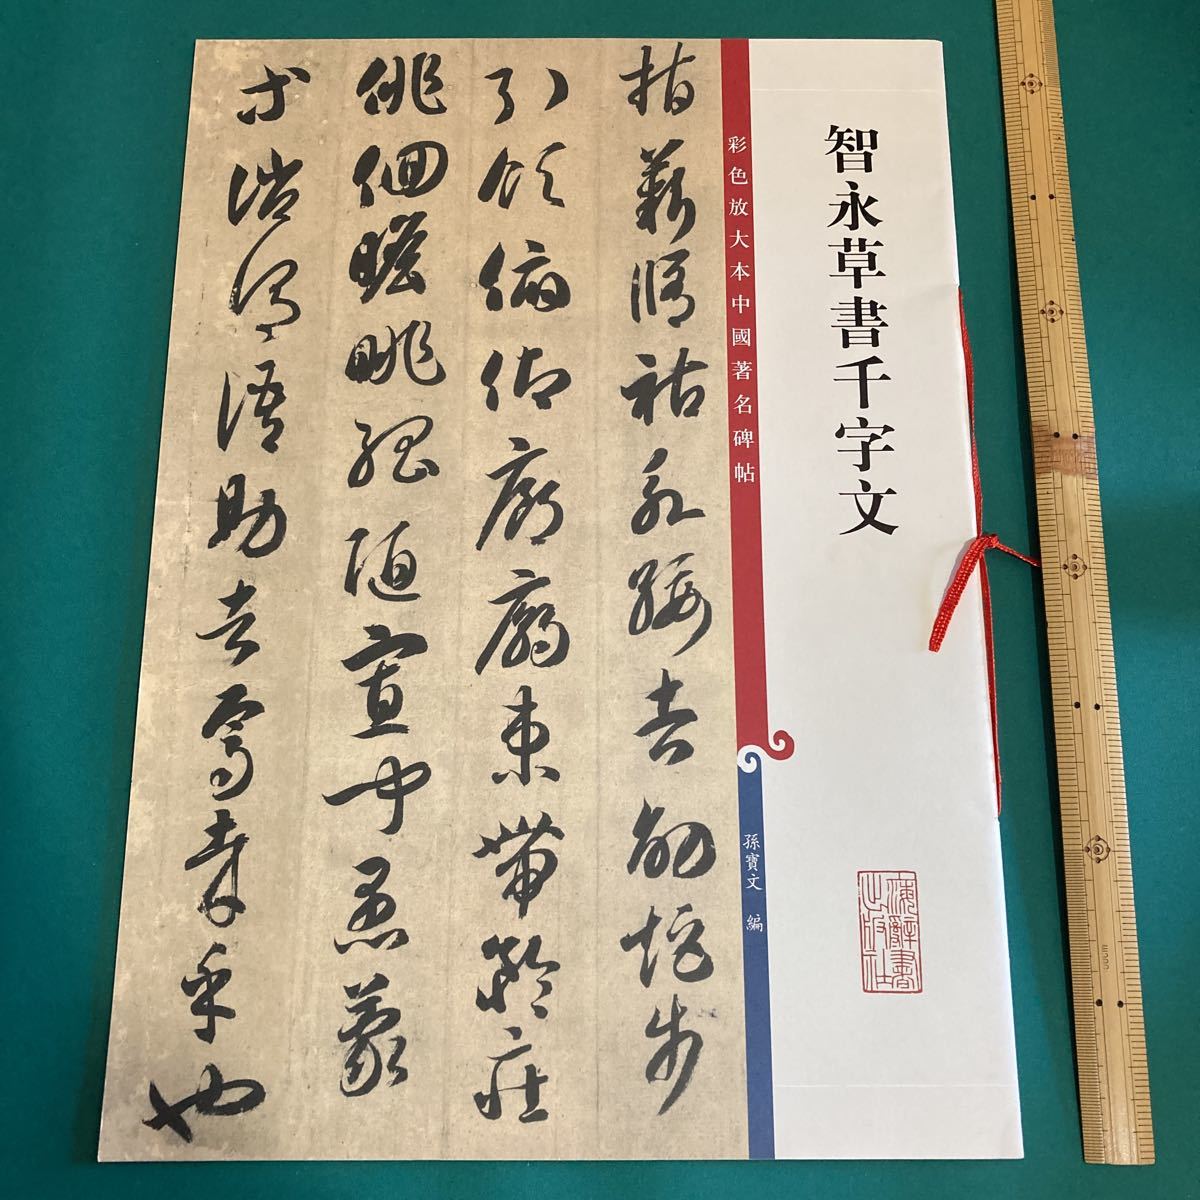 智永草書千字文
上海辭書
出版社
彩色放大本中國著名碑帖
孫寶文 編
指薪脩祜永綏吉劭矩步
引領俯仰廊廟束帶矜莊
俳佪瞻眺孤陋寡聞愚蒙
等誚謂語助者焉哉乎也